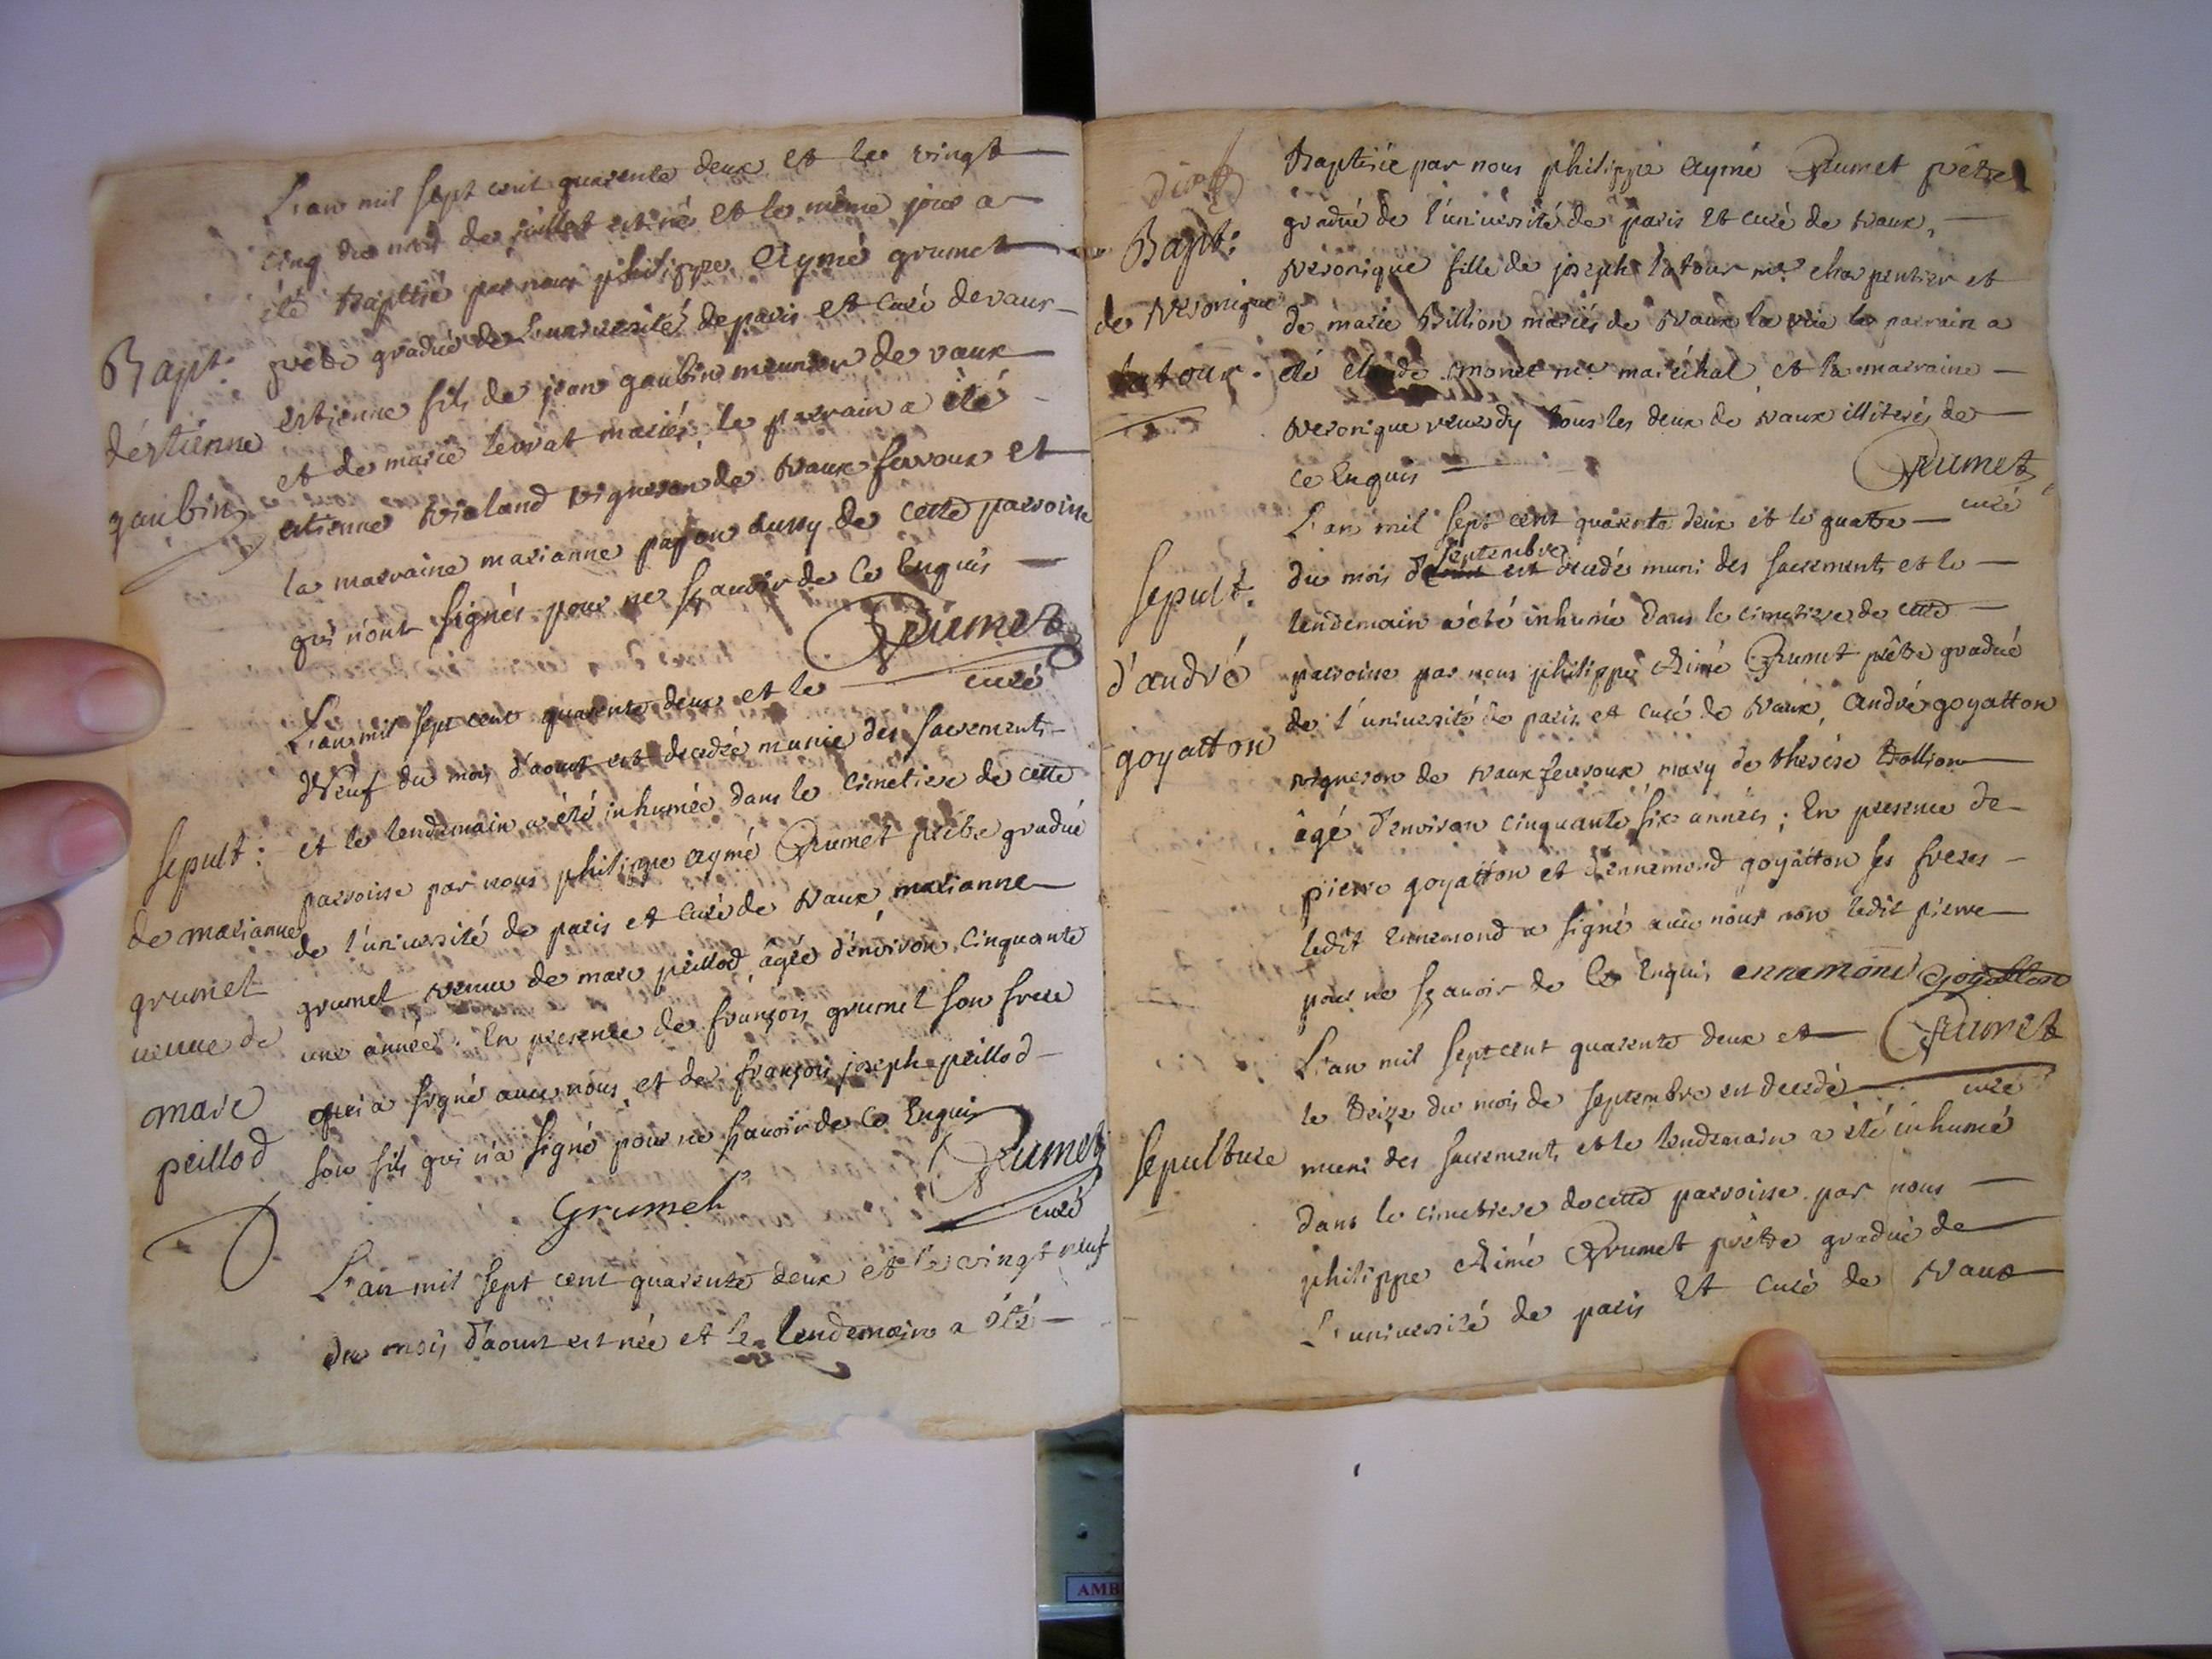 L'an mil sept cent quarente deux et le vingt
cinq du mois de juillet est né et le même jour a
été baptisé par nous philippe Aymé grumet
prêtre gradué de l'université de paris et curé de vaux
Bapt:
d'estienne
gaubin
estienne fils de jean gaubin meunier de vaux
et de marie levrat mariés, le parrain a été
estienne violand vigneron de vaux fevroux et
la marraine marianne papon aussy de cette parroisse
qui n'ont signés pour ne sçavoir de ce Enquis
Grumet
curé
L'an mil sept cent quarente deux et le
neuf du mois d'aoust est decedée munie des sacrements
et le lendemain a été inhumée dans le cimetiere de cette
parroisse par nous philippe aymé Grumet prêtre gradué
de l'université de paris et curé de vaux marianne
grumet veuve de marc peillod, âgée d'environ cinquante
une année. En presence de françois grumet son frere
qui a signé avec nous et de françois joseph peillod
son fils qui n'a signé pour ne sçavoir de ce Enquis
Sepult:
de marianne
grumet
veuve de
marc
peillod
Grumet
Grumet
curé
L'an mil sept cent quarente deux et le vingt neuf
du mois d'aoust est née et le lendemain a été
Baptisée par nous philippe Aymé Grumet prêtre
gradué de l'université de paris et curé de vaux,
veronique fille de joseph latour me. charpentier et
de marie Billion mariés de vaux la parrain a
été claude monet me. maréchal et la marraine
veronique tous les deux de vaux illiterés de
ce Enquis
Bapt:
de veronique
latour.
Grumet
curé
L'an mil sept cent quarente deux et le quatre
du mois de septembre est decedé muni des sacrements et le
lendemain a été inhumé dans le cimetiere de cette
parroisse par nous philippe Aimé Grumet prêtre gradué
de l'université de paris et curé de vaux, André goyatton
vigneron de vaux fevroux mary de therese
âgé d'environ cinquante six années; En presence de
pierre goyatton et d'ennemond goyatton ses freres
ledit Ennemond a signé avec nous non ledit pierre
pour ne sçavoir de ce Enquis ennemond goyatton
Sepult.
d'andré
goyatton
Grumet
curé
L'an mil sept cent quarente deux et
le treize du mois de septembre est decedé
muni des sacrements et le lendemain a été inhumé
dans le cimetiere de cette parroisse par nous
philippe Aimé Grumet prêtre gradué de
L'université de paris Et curé de vaux
Sepulture
AMB